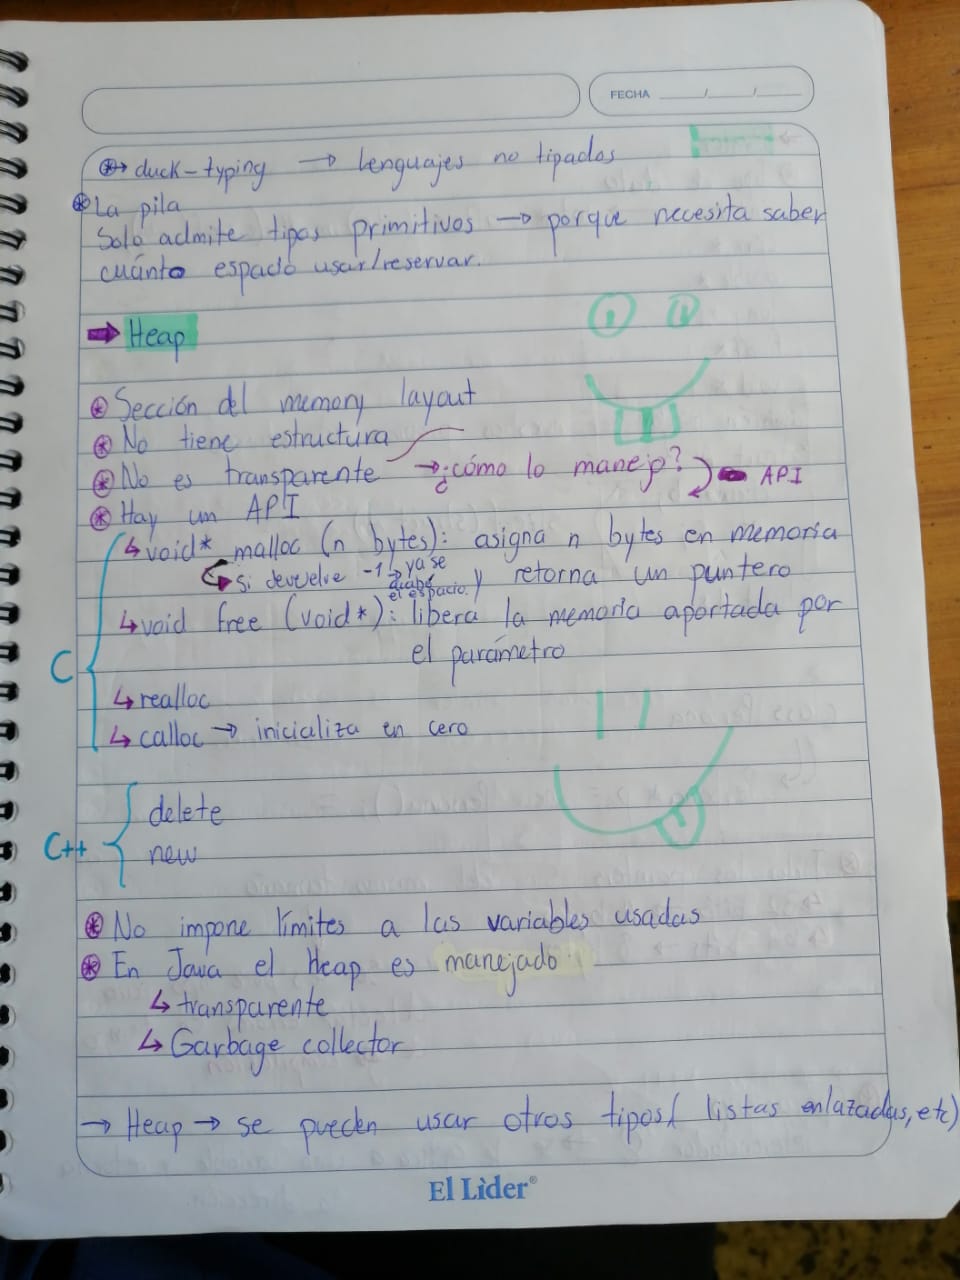 FECHA ___/___/___
⊛→ duck-typing → lenguajes no tipados
⊛ La pila
Solo admite tipos primitivos → porque necesita saber
cuánto espacio usar/reservar.
➡ Heap
⊛ Sección del memory layout
⊛ No tiene estructura
⊛ No es transparente → ¿cómo lo manejo? → API
⊛ Hay un API
C
↳ void* malloc (n bytes): asigna n bytes en memoria
y retorna un puntero
↳ si devuelve -1 → ya se
acabó
el espacio.
↳ void free (void*): libera la memoria aportada por
el parámetro
↳ realloc
↳ calloc → inicializa en cero
C++
delete
new
⊛ No impone límites a las variables usadas
⊛ En Java el Heap es manejado
↳ transparente
↳ Garbage collector
→ Heap → se pueden usar otros tipos( listas enlazadas, etc)
El Lider®